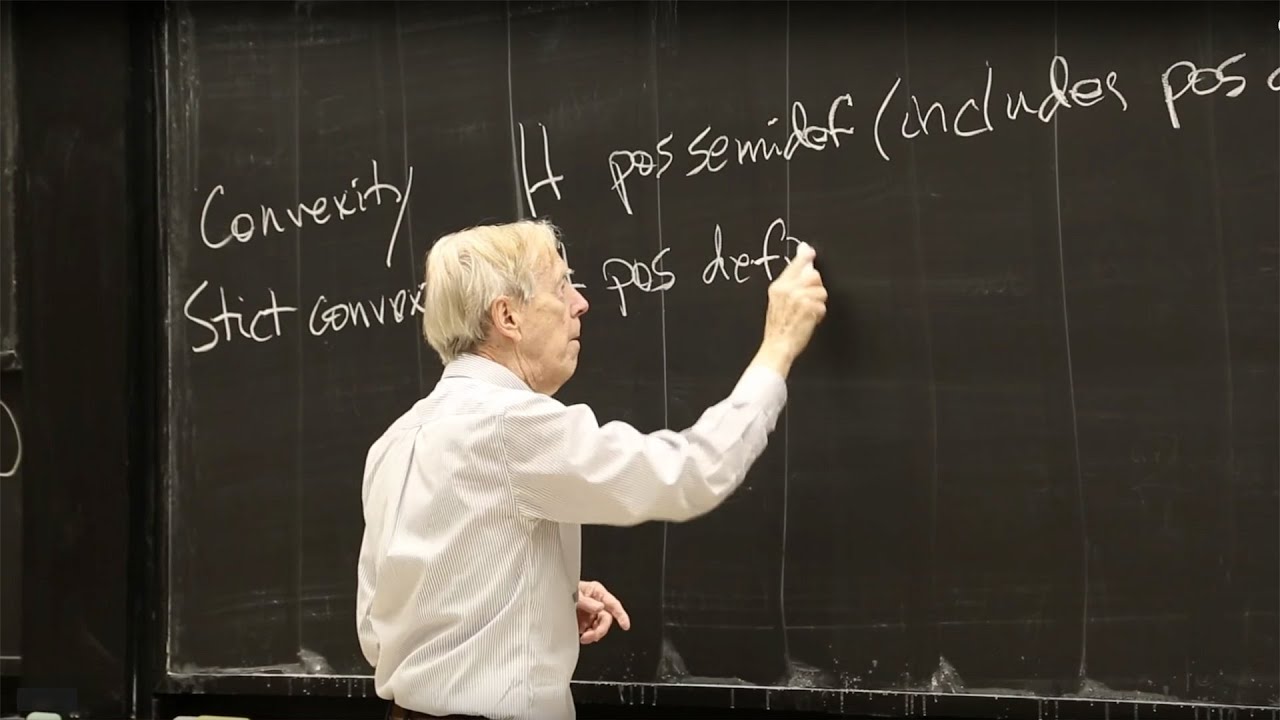 Convexity H pos semidef (includes pos
Stict convex pos def